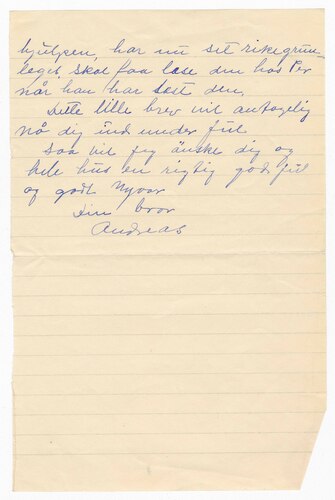 hjulpen, har nu set rikegrun-
leget, skal faa læse den hos Per
når han har læst den.
Dette lille brev vil antagelig
nå dig ind under jul
saa vil jeg änske dig og
hele hus en rigtig god jul
og godt nyaar
Din bror
Andreas